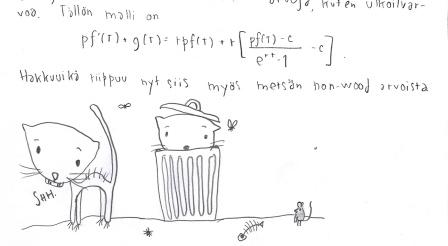 arvoja, kuten ulkoilvar-
voa. Tällön malli on
pf'(T) + g(T) = rpf(T) + r [ pf(T) - c / e^rT - 1 - c ].
Hakkuuikä riippuu nyt siis myös metsän non-wood arvoista
SHH.